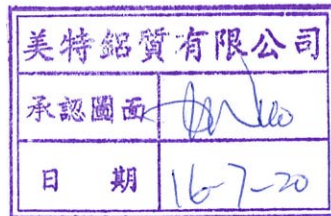 美特鋁質有限公司
承認圖面
日 期 16-7-20